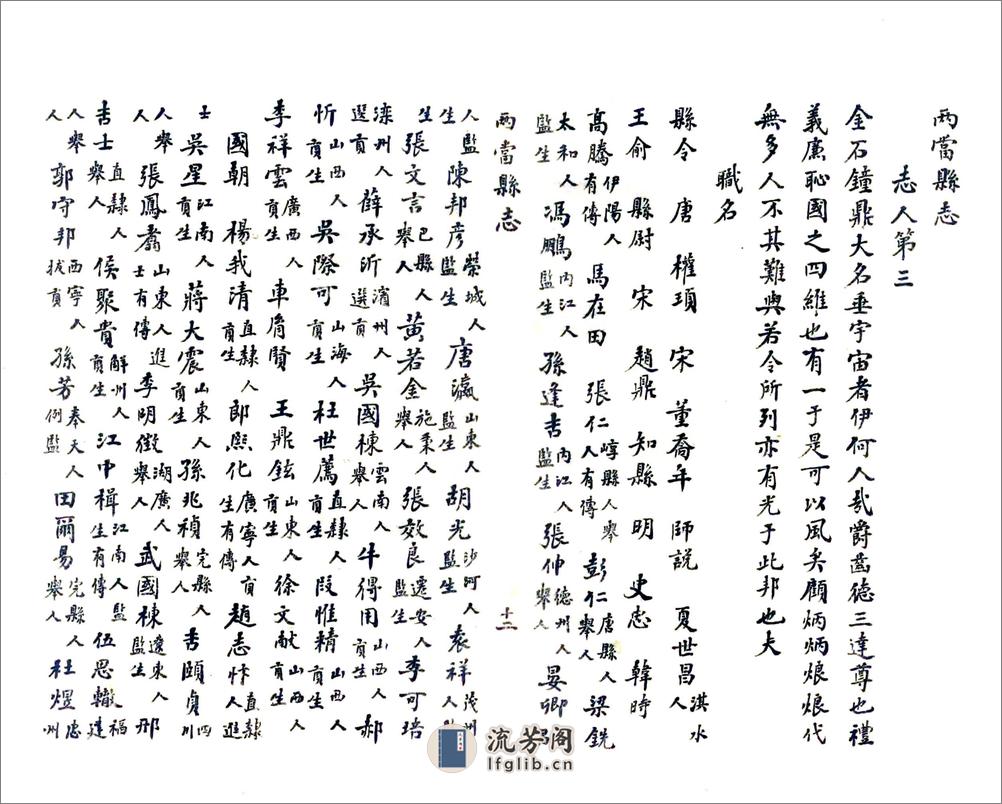 兩當縣志
志人第三
金石鐘鼎大名垂宇宙者伊何人哉爵齒德三達尊也禮
義廉恥國之四維也有一于是可以風矣顧炳炳烺烺代
無多人不其難與若令所列亦有光于此邦也大
職名
縣令 唐 權頊 宋 董喬年 師說 夏世昌 淇水人
王俞 縣尉 宋 趙鼎 知縣 明 史忠 韓時
高騰 伊陽人有傳 馬在田 張仁 崞縣人舉人有傳 彭仁 唐縣人舉人 梁銑
太和人監生 馮鵬 內江人監生 孫逢吉 內江人監生 張仲 德州人舉人 晏卿
兩當縣志 十二
人監生 陳邦彥 榮城人監生 唐瀛 山東人監生 胡光 沙河人監生 袁祥 茂州人監
生 張文言 巴縣人舉人 黃若金 施秉人舉人 張效良 遷安人監生 李可培
灤州人選貢 薛承沂 濱州人選貢 吳國棟 雲南人舉人 牛得用 山西人貢生 郝
忻 山西人貢生 吳際可 山海人貢生 杜世薦 直隸人貢生 段惟精 山西人貢生
李祥雲 廣西人貢生 車胤賢 王鼎鉉 山東人貢生 徐文獻 山西人貢生
國朝 楊我清 直隸人貢生 郎熙化 廣寧人貢生有傳 趙志忭 直隸人進
士 吳星 江南人貢生 蔣大震 山東人貢生 孫兆禎 完縣人舉人 李頤貞 四川
人舉人 張鳳翥 山東人進士有傳 李明徵 湖廣人舉人 武國棟 遼東人監生 邢
吉士 直隸人舉人 侯聚貴 解州人貢生 江中楫 江南人監生有傳 伍思轍 福建
人舉人 郭守邦 西寧人拔貢 孫芳 奉天人例監 田爾易 完縣人舉人 杜煜 忠州
流芳阁
lfglib.cn